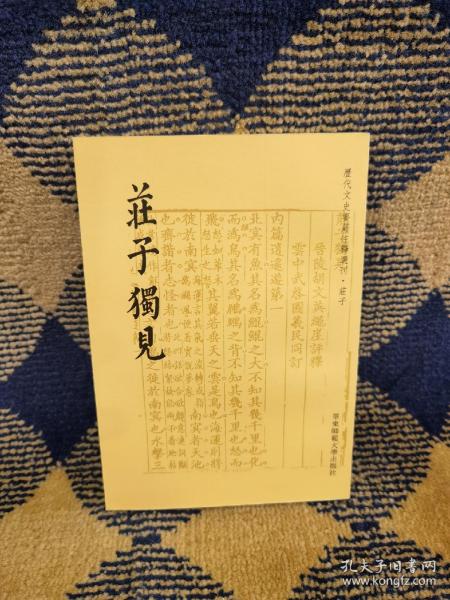 歷代文史要籍注釋選刊·莊子
莊子獨見
晉陵胡文英繩崖評釋
雲中武啓圖羲民同訂
內篇逍遙遊第一
北冥有魚其名爲鯤鯤之大不知其幾千里也化
而爲鳥其名爲鵬鵬之背不知其幾千里也怒而
飛其翼若垂天之雲是鳥也海運則將
徙於南冥南冥者天池
也齊諧者志怪者也
之徙於南冥也水擊三
華東師範大學出版社
孔夫子旧书网
www.kongfz.com